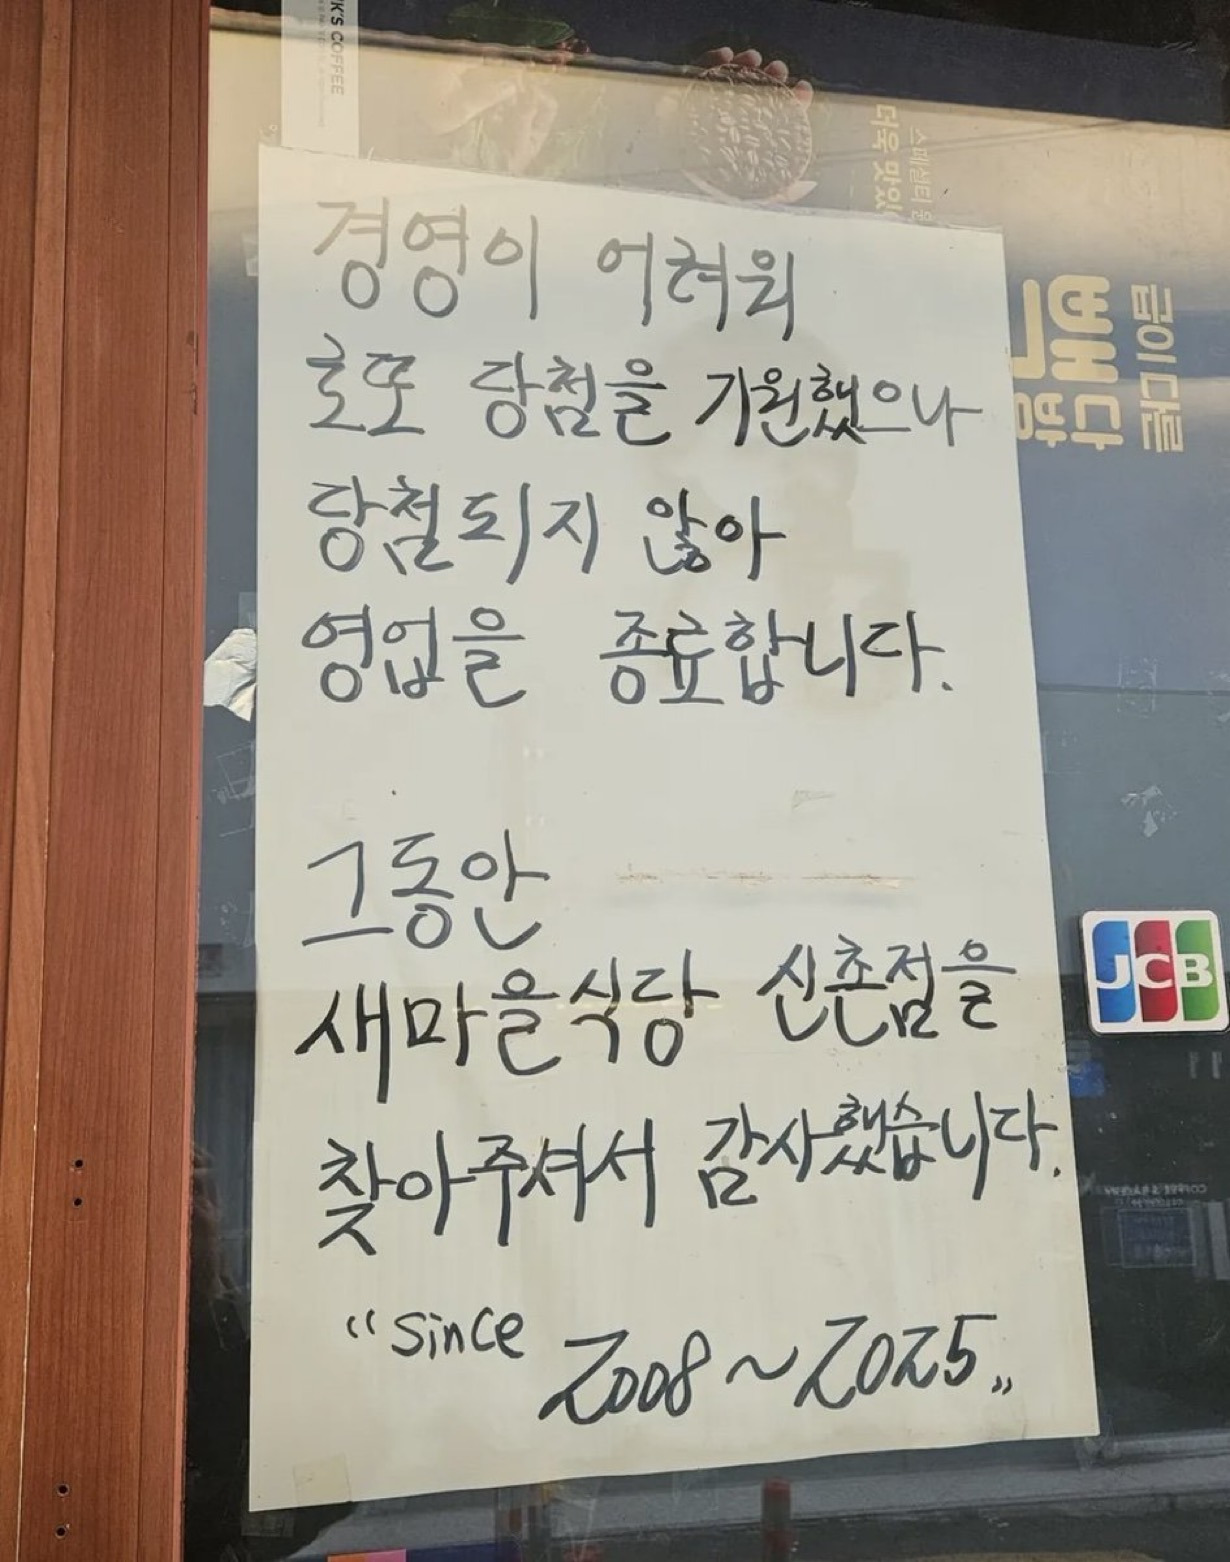 경영이 어려워
로또 당첨을 기원했으나
당첨되지 않아
영업을 종료합니다.
그동안
새마을식당 신촌점을
찾아주셔서 감사했습니다.
"since 2008~2025"
K'S COFFEE
스페셜티
더욱 맛있
급이 다른
빽다방
JCB